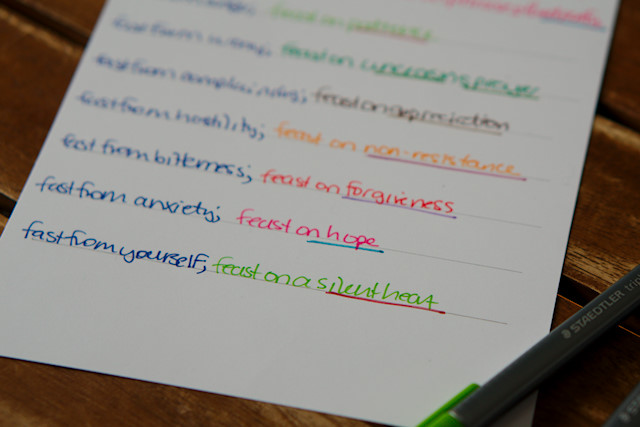 feast on patience
fast from worry; feast on unceasing prayer
fast from complaining; feast on appreciation
fast from hostility; feast on non-resistance
fast from bitterness; feast on forgiveness
fast from anxiety; feast on hope
fast from yourself; feast on a silent heart
STAEDTLER